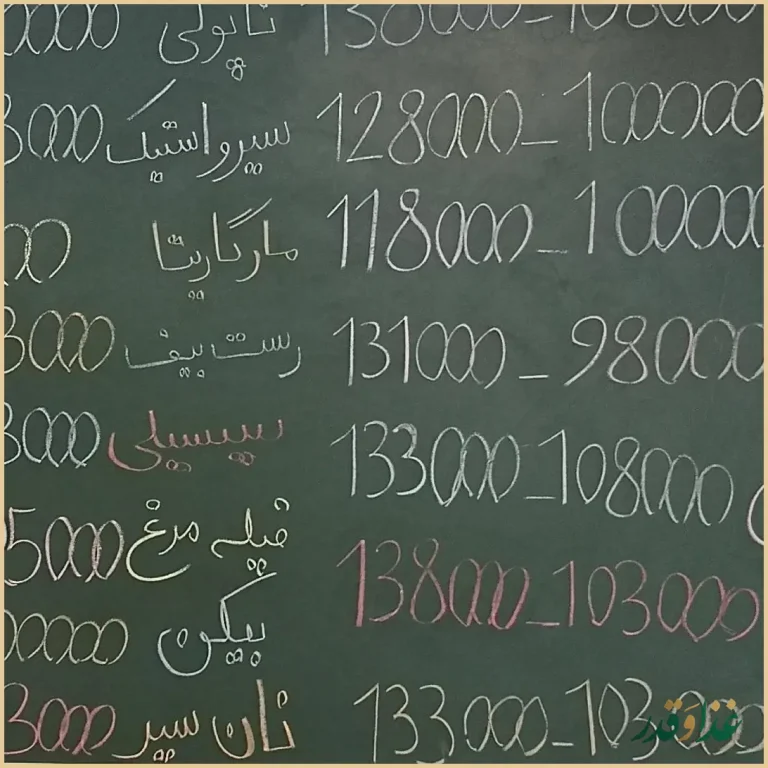 000 ناپولی 138000_108000
3000 سیر و استیک 128000_100000
00 مارگاریتا 118000_100000
3000 رست بیف 131000_98000
3000 سیسیلی 133000_108000
5000 فیله مرغ 138000_103000
0000 بیکن
3000 نان سیر 133000_103000
غذا و قدر